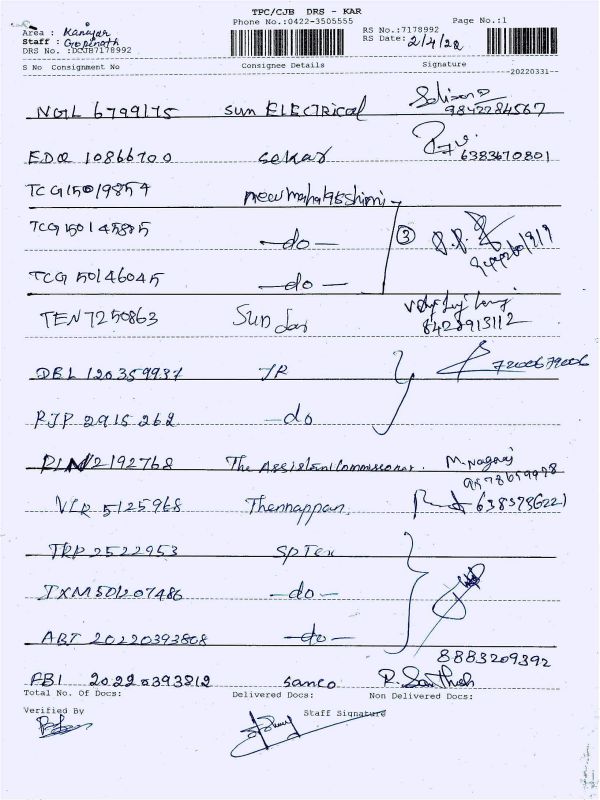 TPC/CJB DRS - KAR
Phone No.:0422-3505555 Page No.:1
Area : Kanajar RS No.:7178992
Staff : Gopinath RS Date: 2/4/22
DRS No. :DCJB7178992
S No Consignment No Consignee Details Signature
20220331
NGL 6799175 Sun ELECTRICAL 9842284567
EDQ 10866700 Sekar 6383670801
TCG15019854
TCG150145885 -do- 3
TCG 50146045 -do-
TEN 7250863 Sun 8428913112
DBL 120359937 JR 7200679006
PJP 2915262 -do
2192768 The Assistant Commissioner. M. Nagaraj
9578659998
VLR 5125968 Thennappan.
TRP 2522953 SP Tex
IXM501207486 -do-
ABT 20220393808 -do-
8883209392
FBI 20220393812 Sanco R. Santhosh
Total No. Of Docs: Delivered Docs: Non Delivered Docs:
Verified By Staff Signature